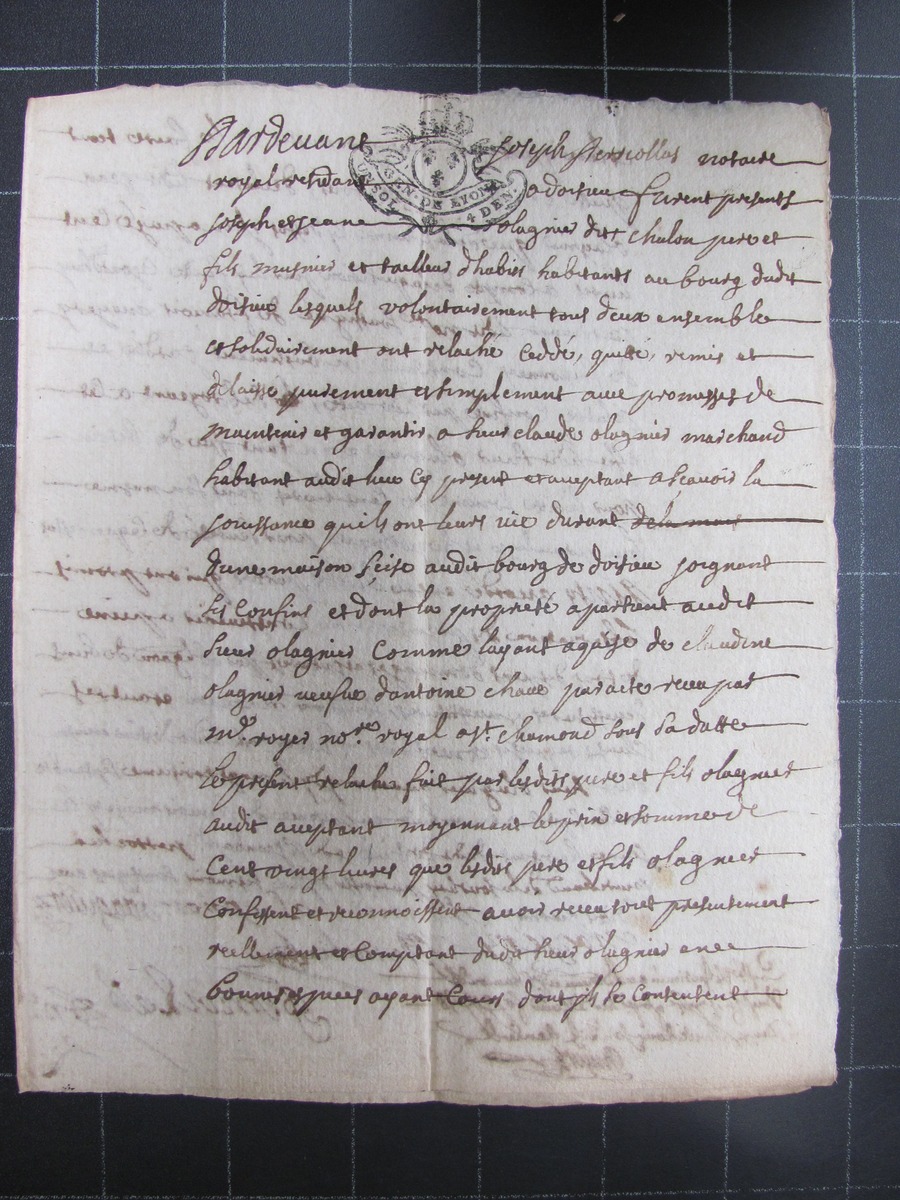 Pardevant Joseph notaire
royal residant a doisieu furent presents
Joseph et Jeane olagnier dits chalou pere et
fils musnier et tailleur dhabits habitants au bourg dudit
doisieu lesquels volontairement tous deux ensemble
et solidairement ont relaché ceddé, quitté, remis et
delaissé purement et simplement avec promesses de
maintenir et garantir a sieur claude olagnier marchand
habitant audit lieu cy present et acceptant a scavoir la
jouissance quils ont leurs vie durant
dune maison scise audit bourg de doisieu joignant
ses confins et dont la proprieté apartient audit
sieur olagnier comme layant aquise de claudine
olagnier veufve dantoine chave par acte receu par
me. royer nore. royal a st. chamond sous sa datte
le present relache fait par lesdits pere et fils olagnier
audit acceptant moyennant le prix et somme de
cent vingt livres que lesdits pere et fils olagnier
confessent et reconnoissent avoir receu tout presentement
reellement et comptant dudit sieur olagnier en
bonnes especes ayant cours dont ils se contentent
GEN. DE LYON
UN SOL
4 DEN.